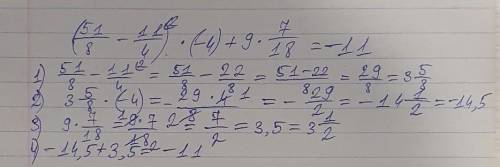 (51/8 - 11/4) · (-4) + 9 · 7/18 = -11
1) 51/8 - 11/4 = 51/8 - 22/8 = 51-22/8 = 29/8 = 3 5/8
2) 3 5/8 · (-4) = - 29 · 4 1/8 2 = - 29/2 = - 14 1/2 = -14,5
3) 9 · 7/18 = 1 9 · 7/18 2 = 7/2 = 3,5 = 3 1/2
4) -14,5 + 3,5 = -11